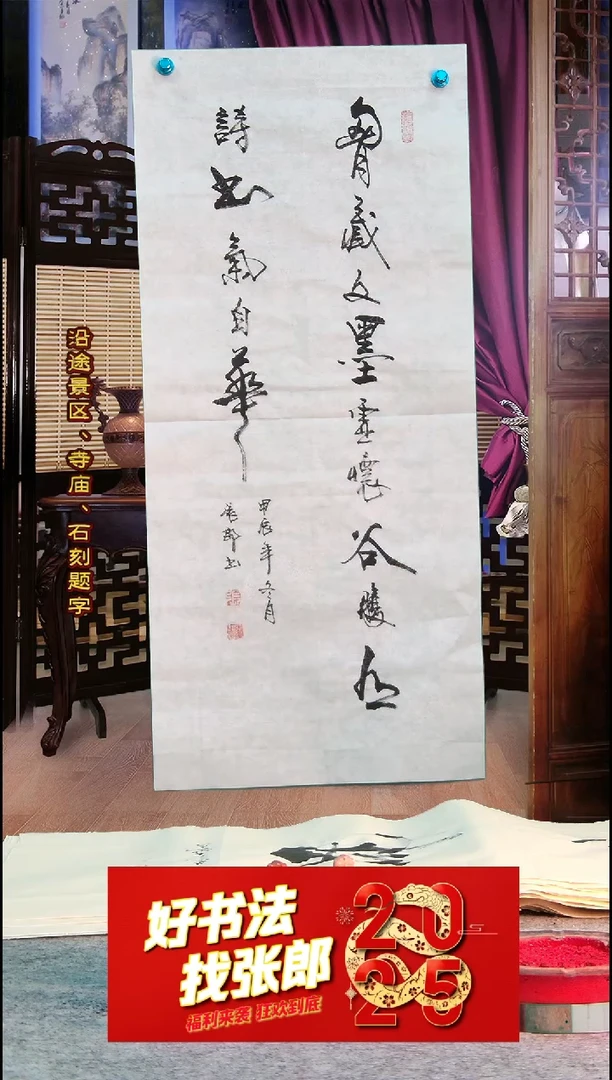 胷藏文墨虛懷谷腹有
詩書氣自華
甲辰年冬月
張郎書
沿途景区、寺庙、石刻题字
好书法
找张郎
福利来袭 狂欢到底
2025